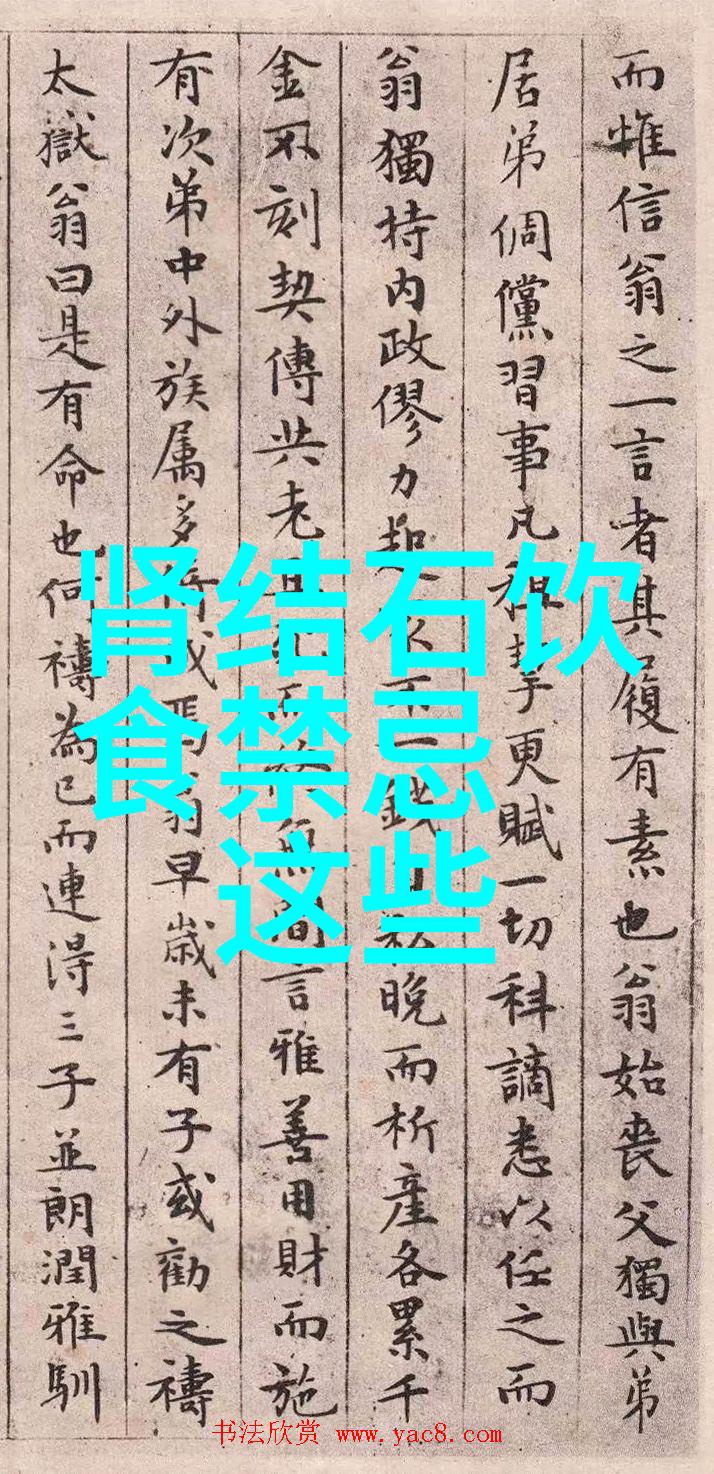 而惟信翁之一言者其履有素也翁始丧父獨與弟
居弟倜儻習事凡程挈更賦一切科謫悉以任之而
翁獨持内政僇力起以不一錢自私晚而析產各累千
金不刻契傳共老且無間言雅善用財而施
有次弟中外族属多翁早歲未有子或勸之禱
太嶽翁曰是有命也何禱為已而連得三子並朗潤雅馴
肾结石饮
食禁忌
这些
书法欣赏 www.yac8.com